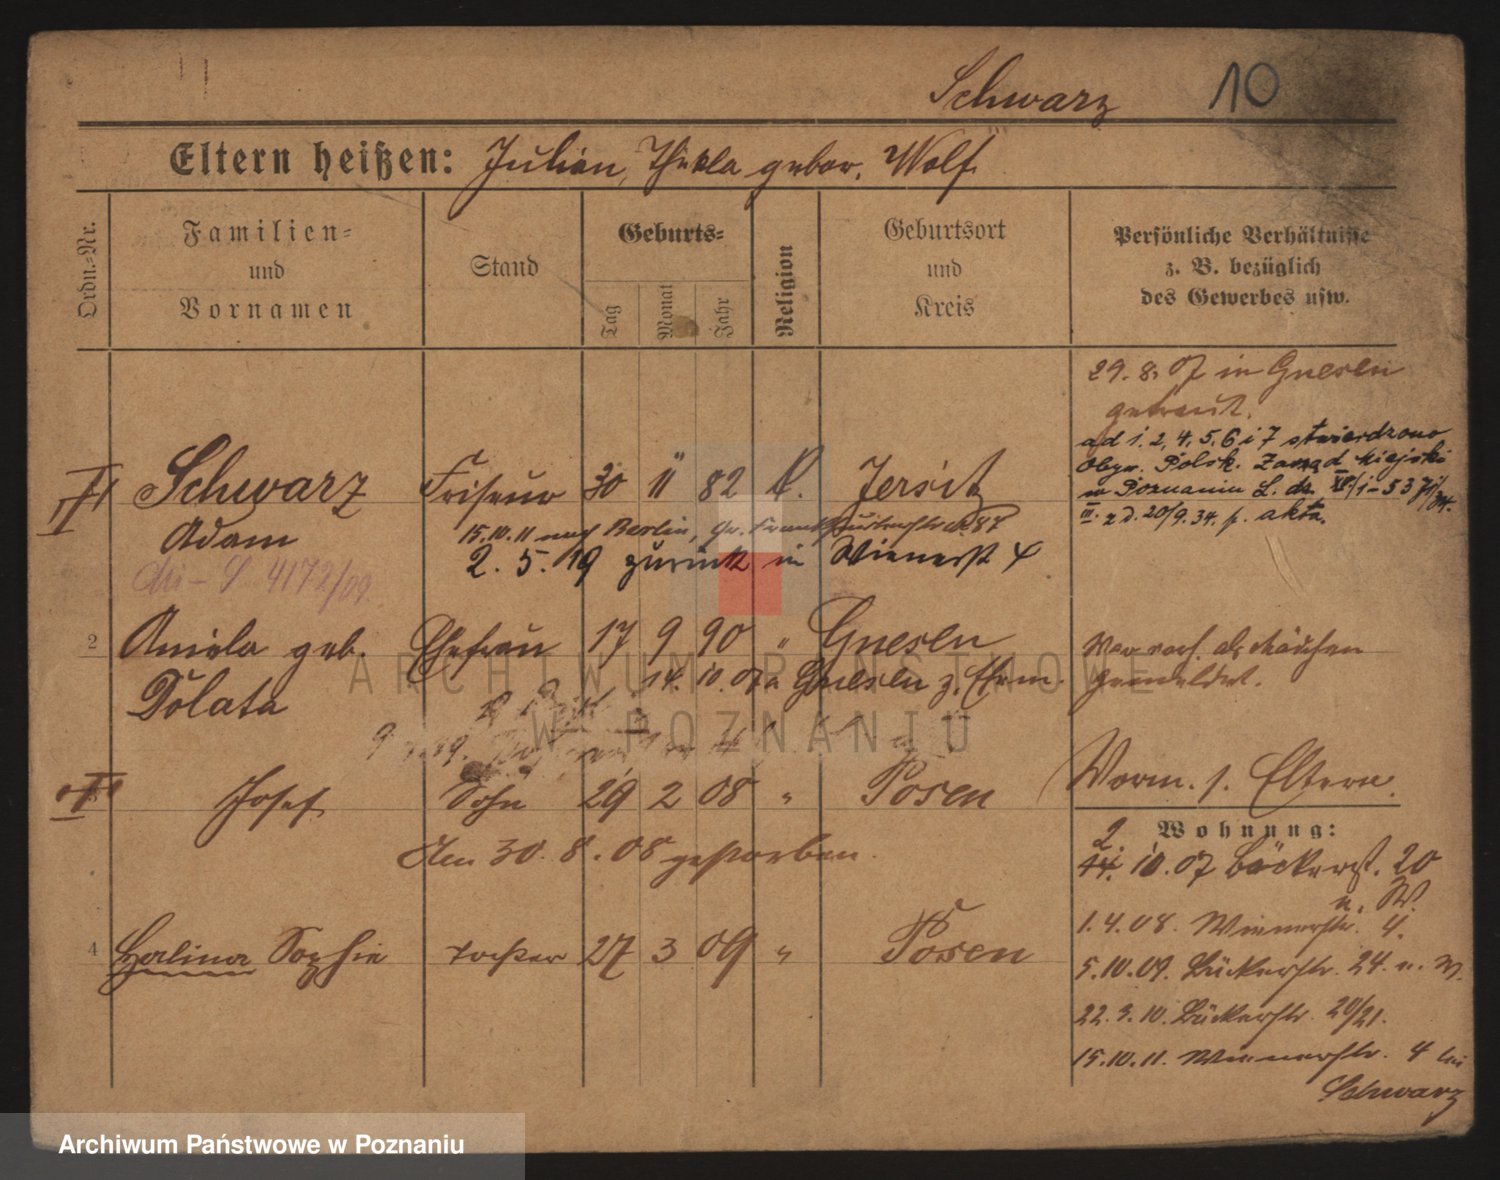 Schwarz 10
Eltern heißen: Julian, Thekla gebor. Wolf
Ordn.-Nr.
Familien-
und
Vornamen
Stand
Geburts-
Tag
Monat
Jahr
Religion
Geburtsort
und
Kreis
Persönliche Verhältnisse
z. B. bezüglich
des Gewerbes usw.
29. 8. 07 in Gnesen
getraut.
ad 1. 2, 4, 5, 6 i 7 stwierdzono
Obyw. Polsk. Zarząd Miejski
w Poznaniu
z d. 20/9.34. p. akta.
Schwarz Friseur 30 11 82 k. Jersitz
Adam
15.10.11 nach Berlin, Gr. Frankfurterstr 87
2. 5. 19 zurück in Wienerst 4
4172/09.
2 Aniela geb. Ehefrau 17 9 90 " Gnesen
Dolata
14. 10. 07 a Gnesen z. Ehem.
War vorh. als Mädchen
gemeldet.
3 Josef Sohn 29 2 08 " Posen
Am 30. 8. 08 gestorben.
Vorm. s. Eltern.
4 Halina Sophie Tochter 27 3 09 " Posen
Wohnung:
2.
14. 10. 07 Bäckerst. 20
n. W.
1. 4. 08. Wienerstr. 4.
5. 10. 09. Bäckerstr. 24. n. W.
22. 3. 10. Bäckerstr. 20/21.
15. 10. 11. Wienerstr. 4 bei
Schwarz
ARCHIWUM PAŃSTWOWE
W POZNANIU
Archiwum Państwowe w Poznaniu